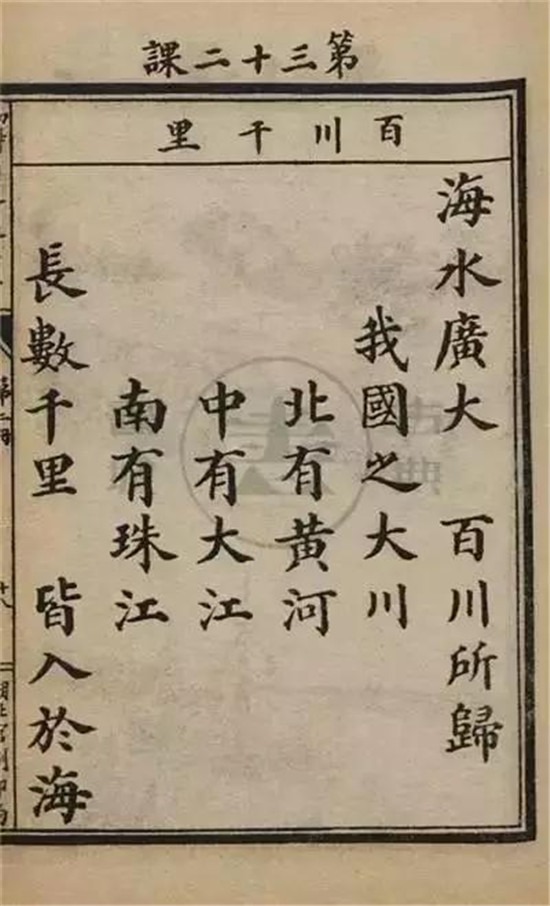 第三十二課
百川千里
海水廣大 百川所歸
我國之大川
北有黃河
中有大江
南有珠江
長數千里 皆入於海
第二冊
十八